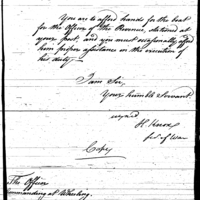 You are to afford hands for the boat
for the Officer of the Revenue, stationed at
your post, and you must occasionally afford
him proper assistance in the execution of
his duty.
I am Sir,
Your humble Servant
signed
H. Knox
Sec of War
Copy
The Officer
Commanding at Wheeling.